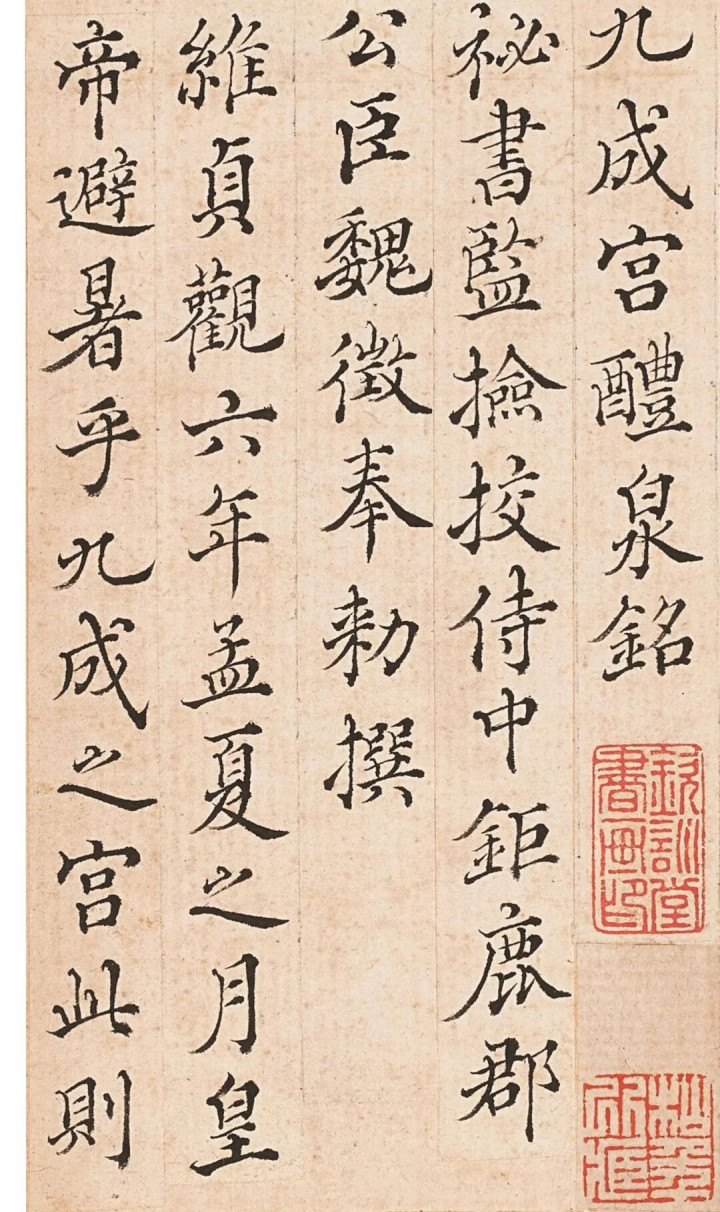 九成宮醴泉銘
祕書監撿挍侍中鉅鹿郡
公臣魏徵奉勑撰
維貞觀六年孟夏之月皇
帝避暑乎九成之宮此則
欽訓堂書畫印